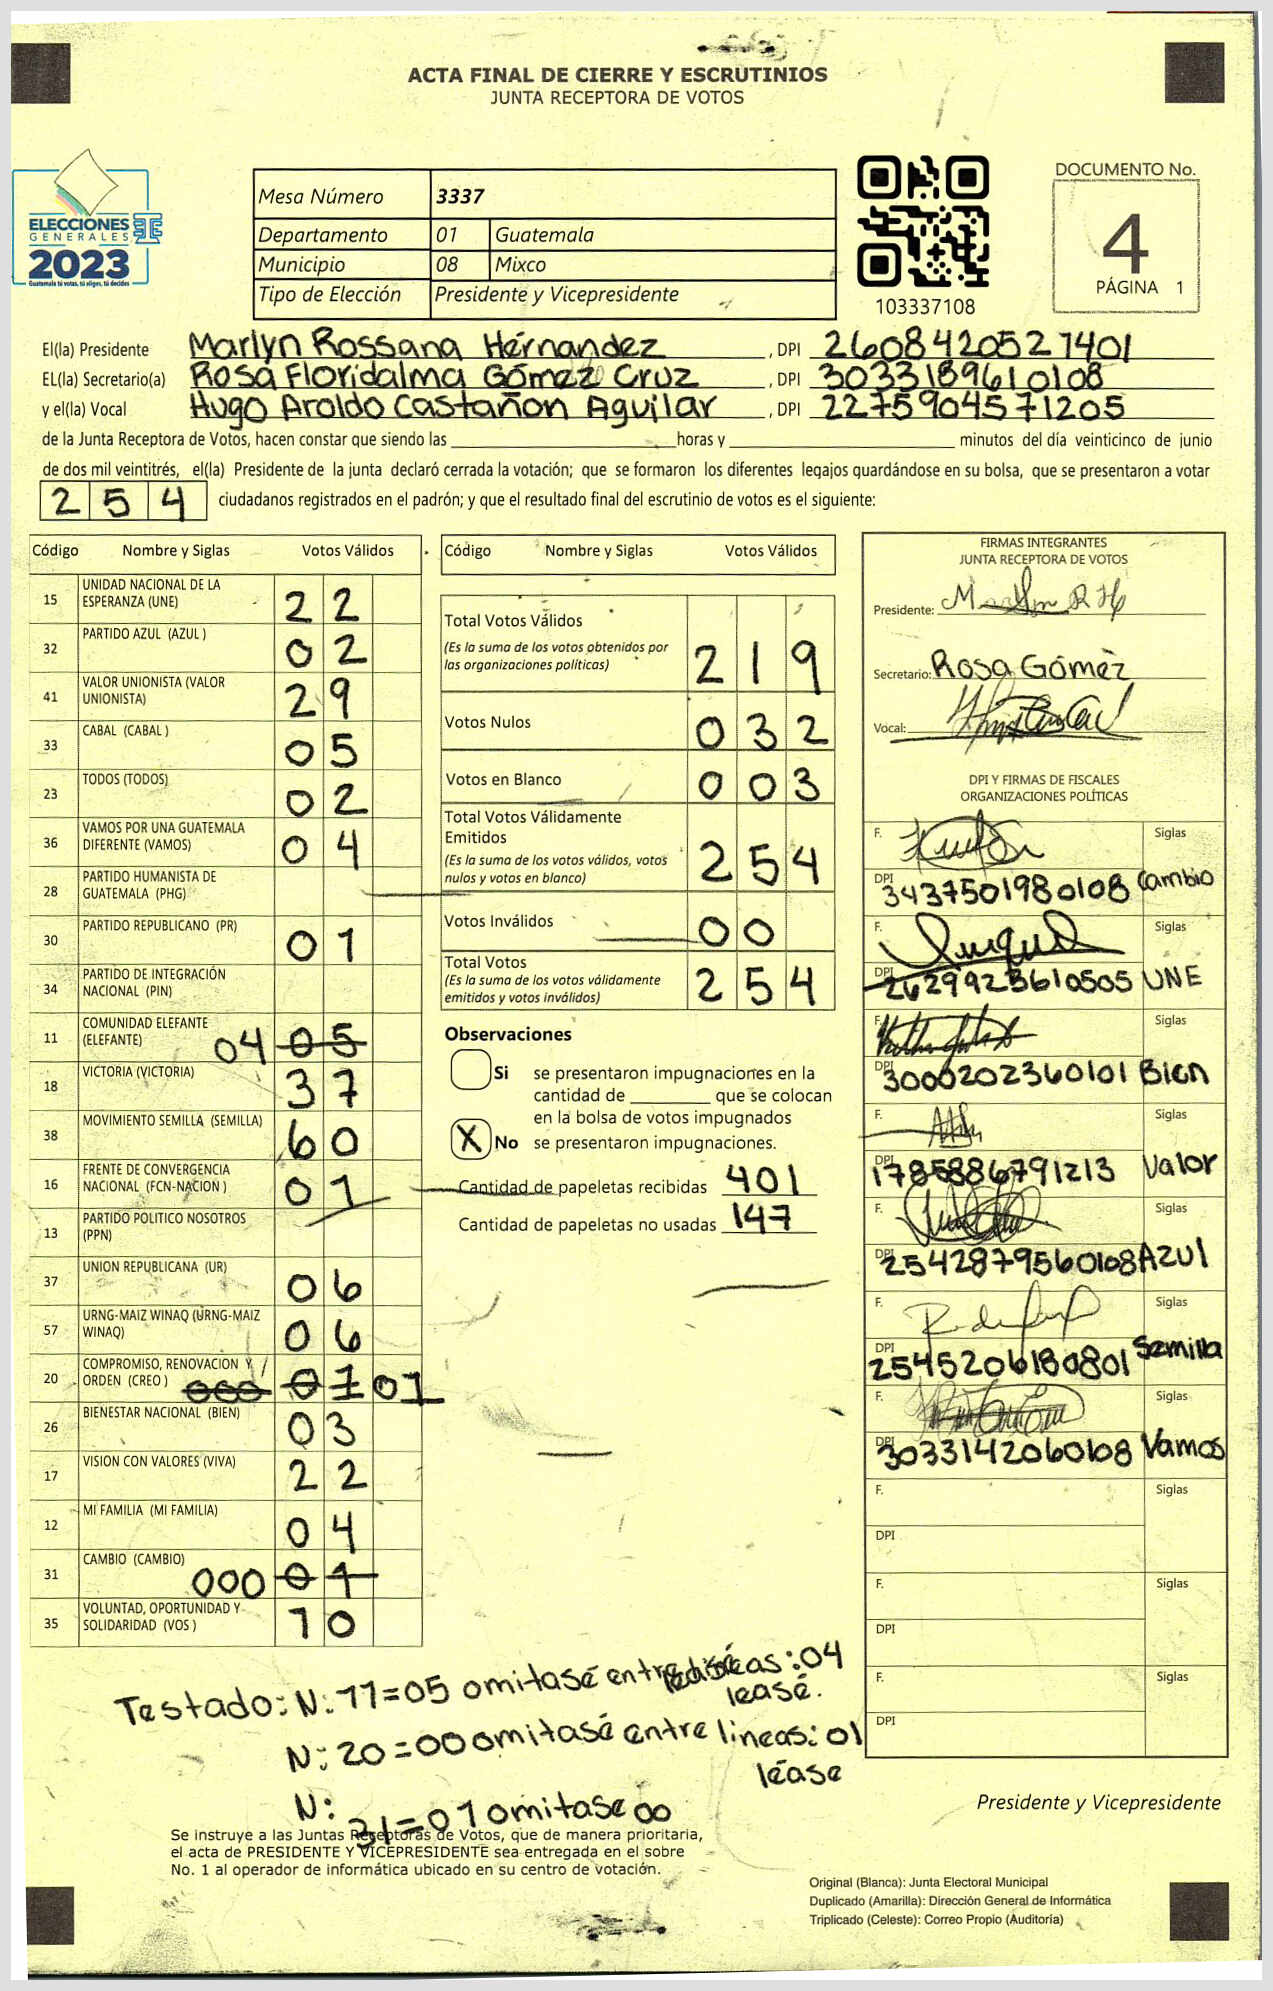 ACTA FINAL DE CIERRE Y ESCRUTINIOS
JUNTA RECEPTORA DE VOTOS
ELECCIONES
GENERALES
2023
Guatemala tú votas, tú eliges, tú decides
Mesa Número 3337
Departamento 01 Guatemala
Municipio 08 Mixco
Tipo de Elección Presidente y Vicepresidente
103337108
DOCUMENTO No.
4
PÁGINA 1
El(la) Presidente Marlyn Rossana Hérnandez, DPI 2608420527401
EL(la) Secretario(a) Rosa Floridalma Gómez Cruz, DPI 3033189610108
y el(la) Vocal Hugo Aroldo Castañon Aguilar, DPI 2275904571205
de la Junta Receptora de Votos, hacen constar que siendo las ____ horas y ____ minutos del día veinticinco de junio
de dos mil veintitrés, el(la) Presidente de la junta declaró cerrada la votación; que se formaron los diferentes legajos guardándose en su bolsa, que se presentaron a votar
254 ciudadanos registrados en el padrón; y que el resultado final del escrutinio de votos es el siguiente:
Código Nombre y Siglas Votos Válidos
15 UNIDAD NACIONAL DE LA ESPERANZA (UNE) 22
32 PARTIDO AZUL (AZUL ) 02
41 VALOR UNIONISTA (VALOR UNIONISTA) 29
33 CABAL (CABAL ) 05
23 TODOS (TODOS) 02
36 VAMOS POR UNA GUATEMALA DIFERENTE (VAMOS) 04
28 PARTIDO HUMANISTA DE GUATEMALA (PHG)
30 PARTIDO REPUBLICANO (PR) 01
34 PARTIDO DE INTEGRACIÓN NACIONAL (PIN)
11 COMUNIDAD ELEFANTE (ELEFANTE) 04 05
18 VICTORIA (VICTORIA) 37
38 MOVIMIENTO SEMILLA (SEMILLA) 60
16 FRENTE DE CONVERGENCIA NACIONAL (FCN-NACION ) 01
13 PARTIDO POLITICO NOSOTROS (PPN)
37 UNION REPUBLICANA (UR) 06
57 URNG-MAIZ WINAQ (URNG-MAIZ WINAQ) 06
20 COMPROMISO, RENOVACION Y ORDEN (CREO ) 000 01 01
26 BIENESTAR NACIONAL (BIEN) 03
17 VISION CON VALORES (VIVA) 22
12 MI FAMILIA (MI FAMILIA) 04
31 CAMBIO (CAMBIO) 000 01
35 VOLUNTAD, OPORTUNIDAD Y SOLIDARIDAD (VOS ) 10
Código Nombre y Siglas Votos Válidos
Total Votos Válidos 219
(Es la suma de los votos obtenidos por
las organizaciones políticas)
Votos Nulos 032
Votos en Blanco 003
Total Votos Válidamente
Emitidos 254
(Es la suma de los votos válidos, votos
nulos y votos en blanco)
Votos Inválidos 00
Total Votos 254
(Es la suma de los votos válidamente
emitidos y votos inválidos)
Observaciones
Si se presentaron impugnaciones en la
cantidad de ____ que se colocan
en la bolsa de votos impugnados
X No se presentaron impugnaciones.
Cantidad de papeletas recibidas 401
Cantidad de papeletas no usadas 147
FIRMAS INTEGRANTES
JUNTA RECEPTORA DE VOTOS
Presidente:
Secretario: Rosa Gómez
Vocal:
DPI Y FIRMAS DE FISCALES
ORGANIZACIONES POLÍTICAS
F. Siglas
DPI 3437501980108 Cambio
F. Siglas
DPI 2629923610505 UNE
F. Siglas
DPI 3000202360101 Bien
F. Siglas
DPI 1785886791213 Valor
F. Siglas
DPI 2542879560108 Azul
F. Siglas
DPI 2545206180801 Semilla
F. Siglas
DPI 3033142060108 Vamos
F. Siglas
DPI
F. Siglas
DPI
F. Siglas
DPI
Testado: N: 11=05 omitasé entre : 04
leasé.
N: 20=00 omitasé entre lineas: 01
léase
N: 31=01 omitase 00
Presidente y Vicepresidente
Se instruye a las Juntas Receptoras de Votos, que de manera prioritaria,
el acta de PRESIDENTE Y VICEPRESIDENTE sea entregada en el sobre
No. 1 al operador de informática ubicado en su centro de votación.
Original (Blanca): Junta Electoral Municipal
Duplicado (Amarilla): Dirección General de Informática
Triplicado (Celeste): Correo Propio (Auditoría)